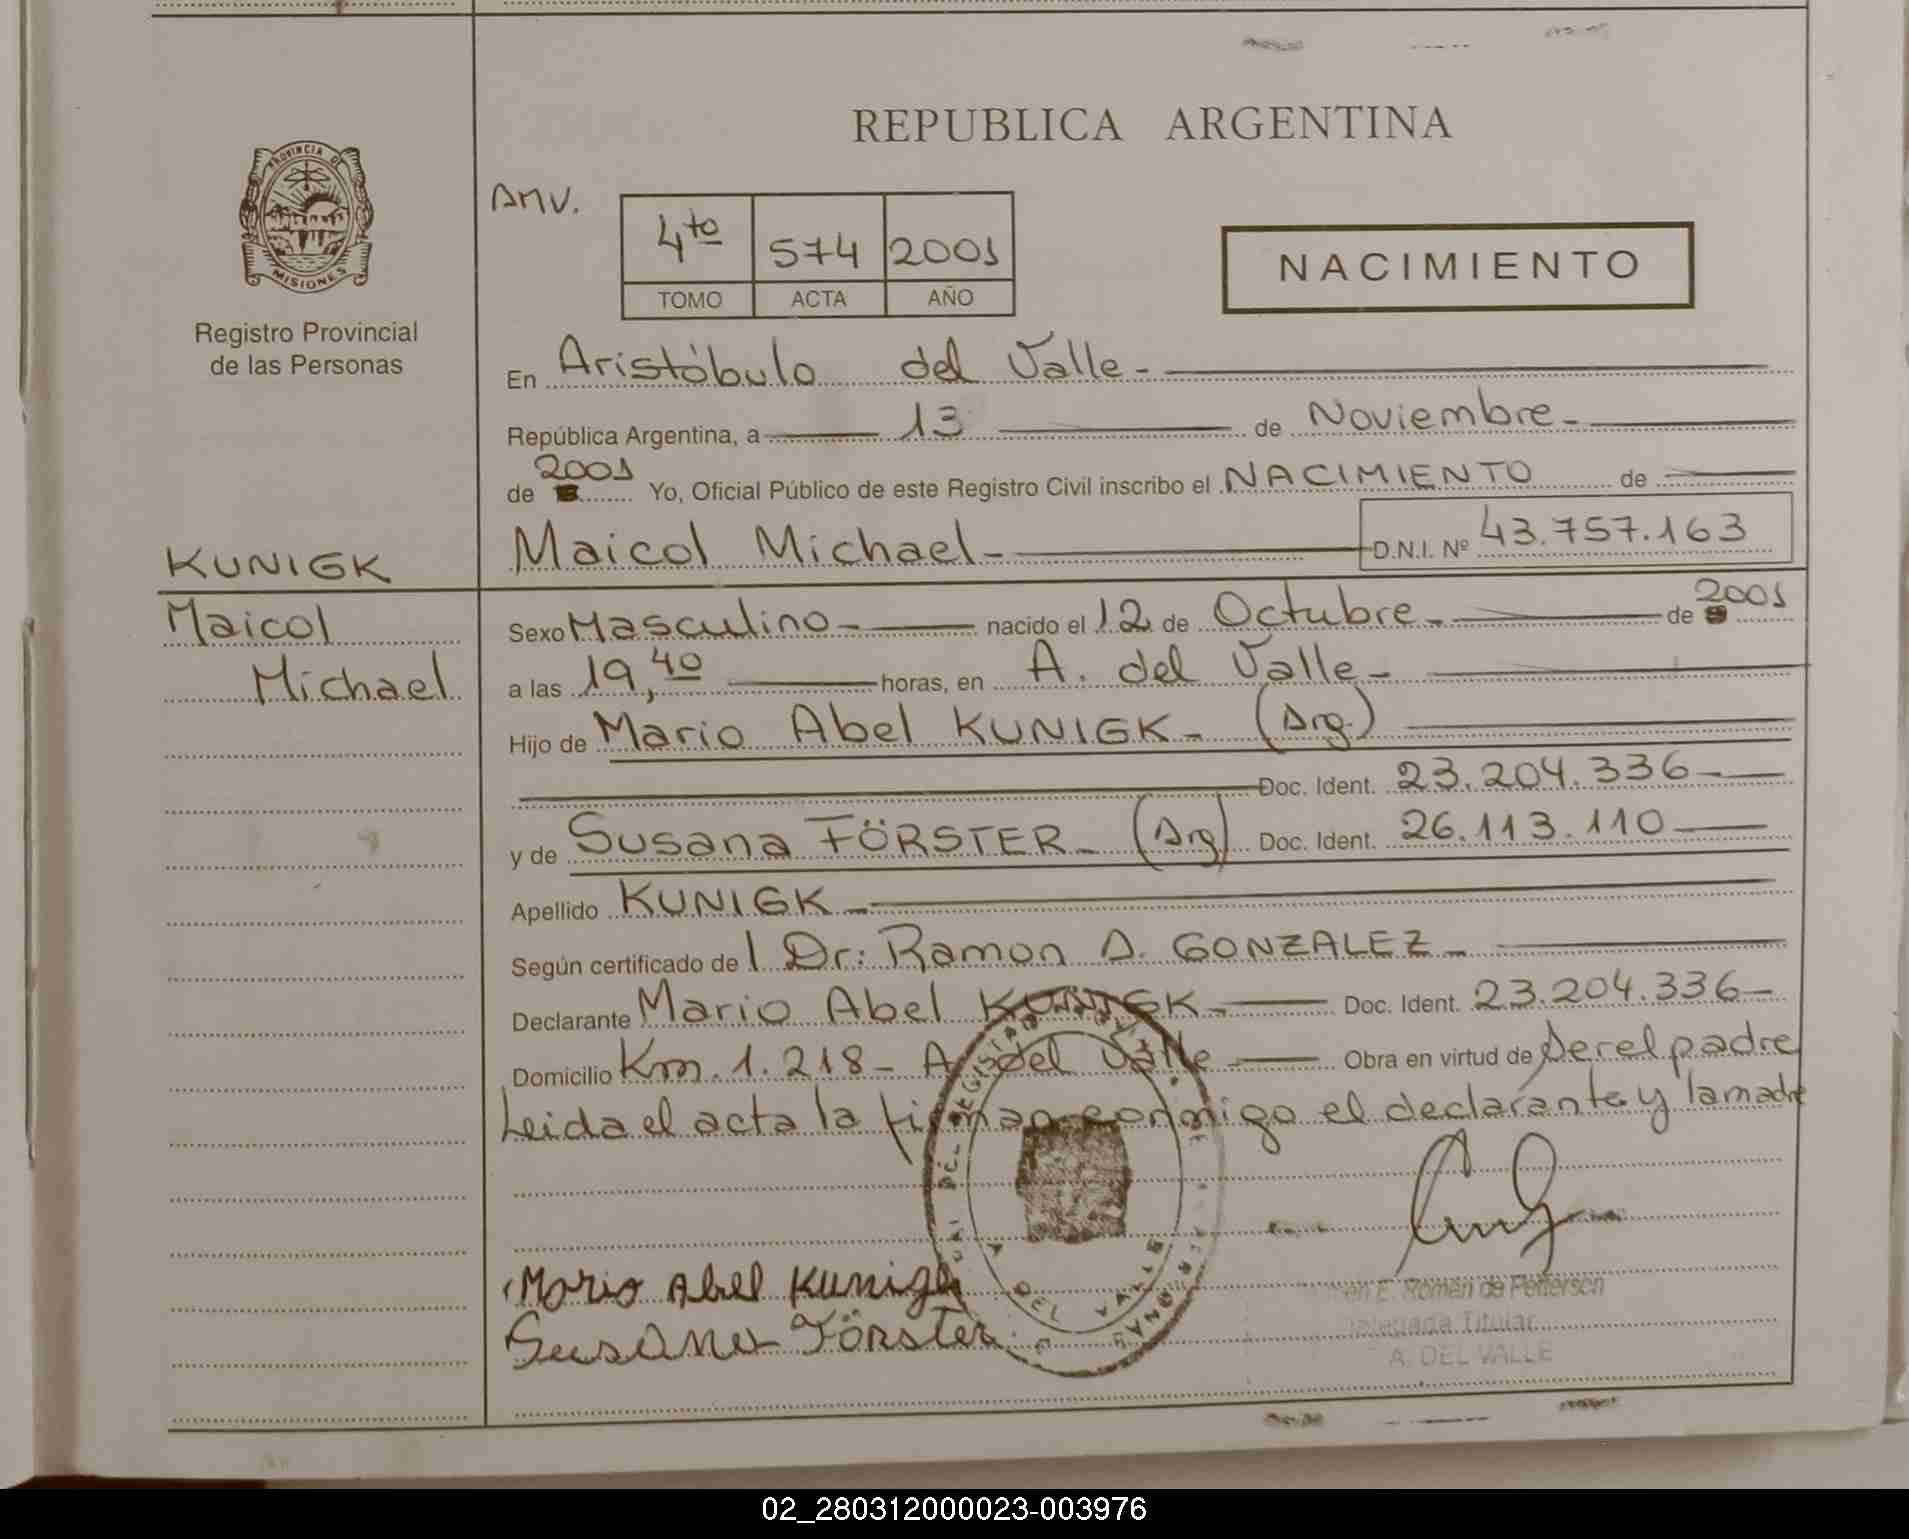 REPUBLICA ARGENTINA
PROVINCIA DE
MISIONES
Registro Provincial
de las Personas
AMV.
4to 574 2001
TOMO ACTA AÑO
NACIMIENTO
En Aristóbulo del Valle-
República Argentina, a 13 de Noviembre-
de 2001 Yo, Oficial Público de este Registro Civil inscribo el NACIMIENTO de
Maicol Michael- D.N.I. Nº 43.757.163
KUNIGK
Maicol
Michael
Sexo Masculino- nacido el 12 de Octubre- de 2001
a las 19,40 horas, en A. del Valle-
Hijo de Mario Abel KUNIGK- (Arg.)
Doc. Ident. 23.204.336-
y de Susana FÖRSTER- (Arg) Doc. Ident. 26.113.110
Apellido KUNIGK-
Según certificado de l Dr: Ramon A. GONZALEZ-
Declarante Mario Abel KUNIGK- Doc. Ident. 23.204.336-
Domicilio Km. 1.218- A. del Valle Obra en virtud de ser el padre
Leida el acta la firman conmigo el declarante y la madre
Mario Abel Kunigk
Susana Förster
A DEL VALLE
E. Román de Petterson
Delegada Titular
A. DEL VALLE
02_280312000023-003976